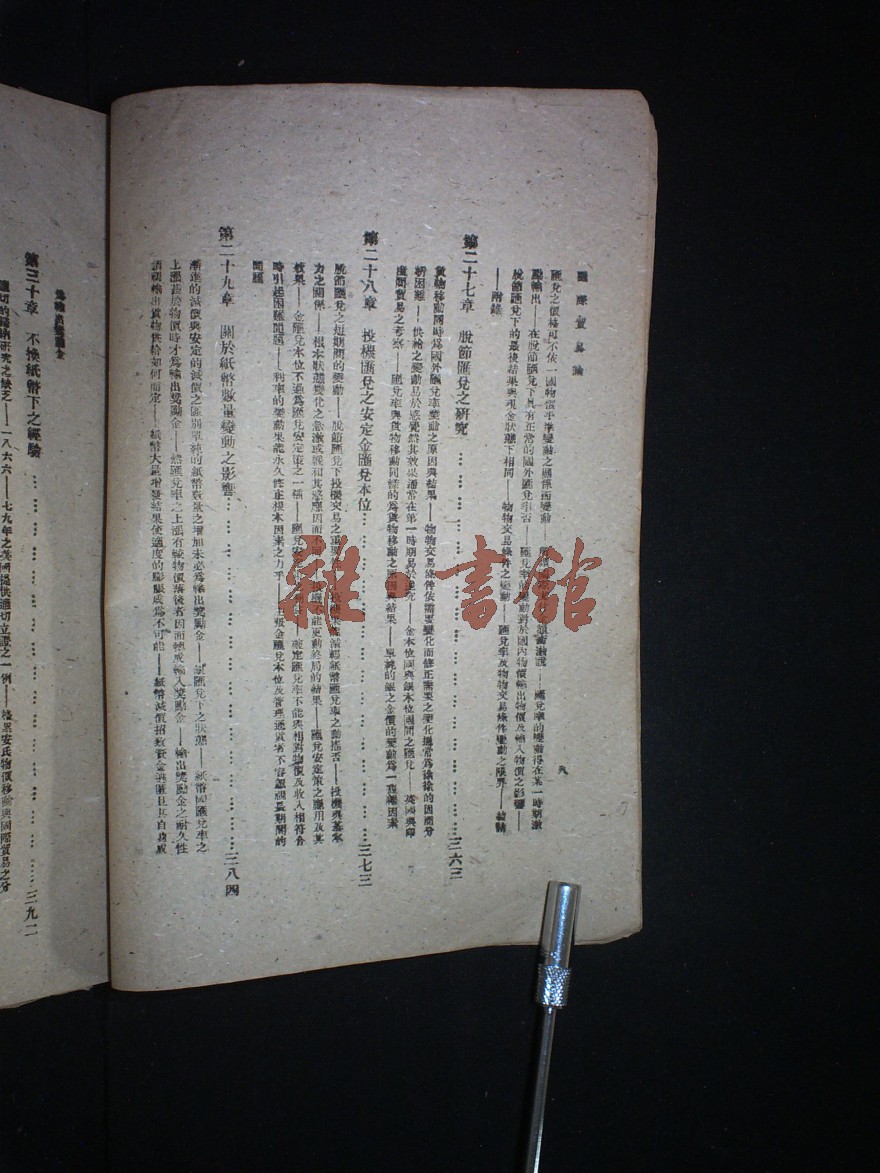 國際貿易論
八
匯兌之價格可不依一國物價平準變動之關係而變動——
匯兌率的變動得在某一時期激
勵輸出——在脫節匯兌下具有正常的國外匯兌率否——匯兌率的變動對於國內物價輸出物價及輸入物價之影響——
脫節匯兌下的最後結果與現金狀態下相同——物物交易條件之變動——匯兌率及物物交易條件變動之限界——結論
——附錄
第二十七章 脫節匯兌之研究……三六三
貨物移動同時為國外匯兌率變動之原因與結果——物物交易條件依需要變化而修正需要之變化通常為徐徐的因而分
析困難——供給之變動易於感覺然其效果通常在第一時期易於
究——金本位國與銀本位國間之匯兌——英國與印
度間貿易之考察——匯兌率與貨物移動同樣的為貨物移動之原因與結果——單純的銀之金價的變動為一複雜因素
第二十八章 投機匯兌之安定金匯兌本位……三七三
脫節匯兌之短期間的變動——脫節匯兌下投機交易之重要
減輕紙幣匯兌率之動搖否——投機與基本
力之關係——根本狀態變化之急激或緩和其感應因而不同
不能更動終局的結果——匯兌安定策之應用及其
效果——金匯兌本位不過為匯兌安定策之一種——匯兌安
定匯兌率不能與相對物價及收入相符合
時引起困難問題——利率的變動果能永久修正根本因素之力乎——
張金匯兌本位及管理通貨者不容忽視長期間的
問題
第二十九章 關於紙幣數量變動之影響……三八四
漸進的減價與安定的減價之區別單純的紙幣數量之增加未必為輸出獎勵金——
匯兌下之狀態——紙幣國匯兌率之
上漲甚於物價時才為輸出獎勵金——然匯兌率之上漲有較物價落後者因而轉成輸入獎勵金——輸出獎勵金之耐久性
須視輸出貨物供給如何而定——紙幣大量增發結果使適度的膨脹成為不可能——紙幣減價招致資金
匯且其自
為輸出獎勵金
第三十章 不換紙幣下之經驗……三九二
適切的歸納研究之缺乏——一八六六——七九年之美國提供適切立證之一例——格累安氏物價移動與國際貿易之分